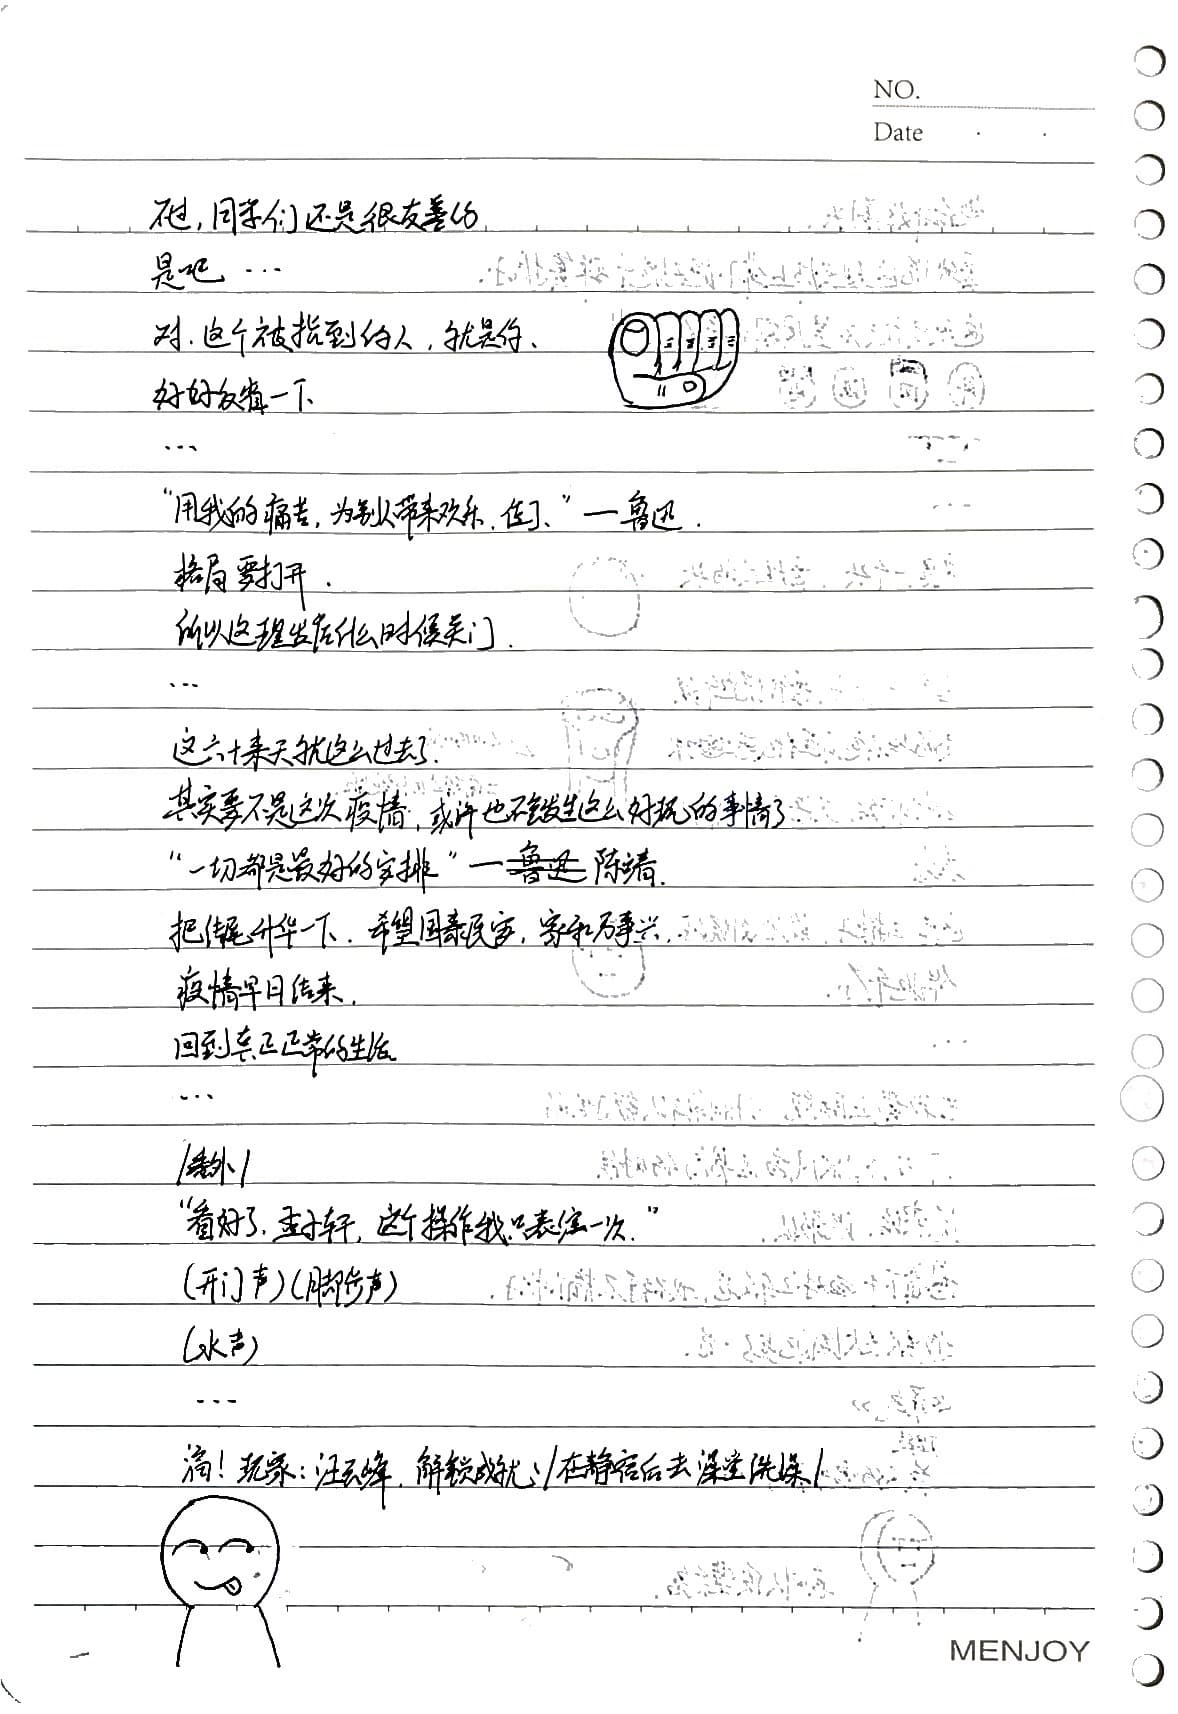 NO.
Date
不过,同学们还是很友善的
是吧 ...
对,这个被指到的人,就是你、
好好反省一下
...
“用我的痛苦,为别人带来欢乐,值了、” — 鲁迅.
格局要打开.
所以这理发店什么时候关门.
...
这六十来天就这么过去了.
其实要不是这次疫情,或许也不会发生这么好玩的事情了
“一切都是最好的安排” — 鲁迅 陈靖.
把结尾升华一下.希望国泰民安,家和万事兴.
疫情早日结束.
回到真正正常的生活
...
/番外/
“看好了,孟轩,这个操作我只表演一次.”
(开门声)(脚步声)
(水声)
...
滴!玩家:汪云峰,解锁成就:/在静宿后去澡堂洗澡/
MENJOY